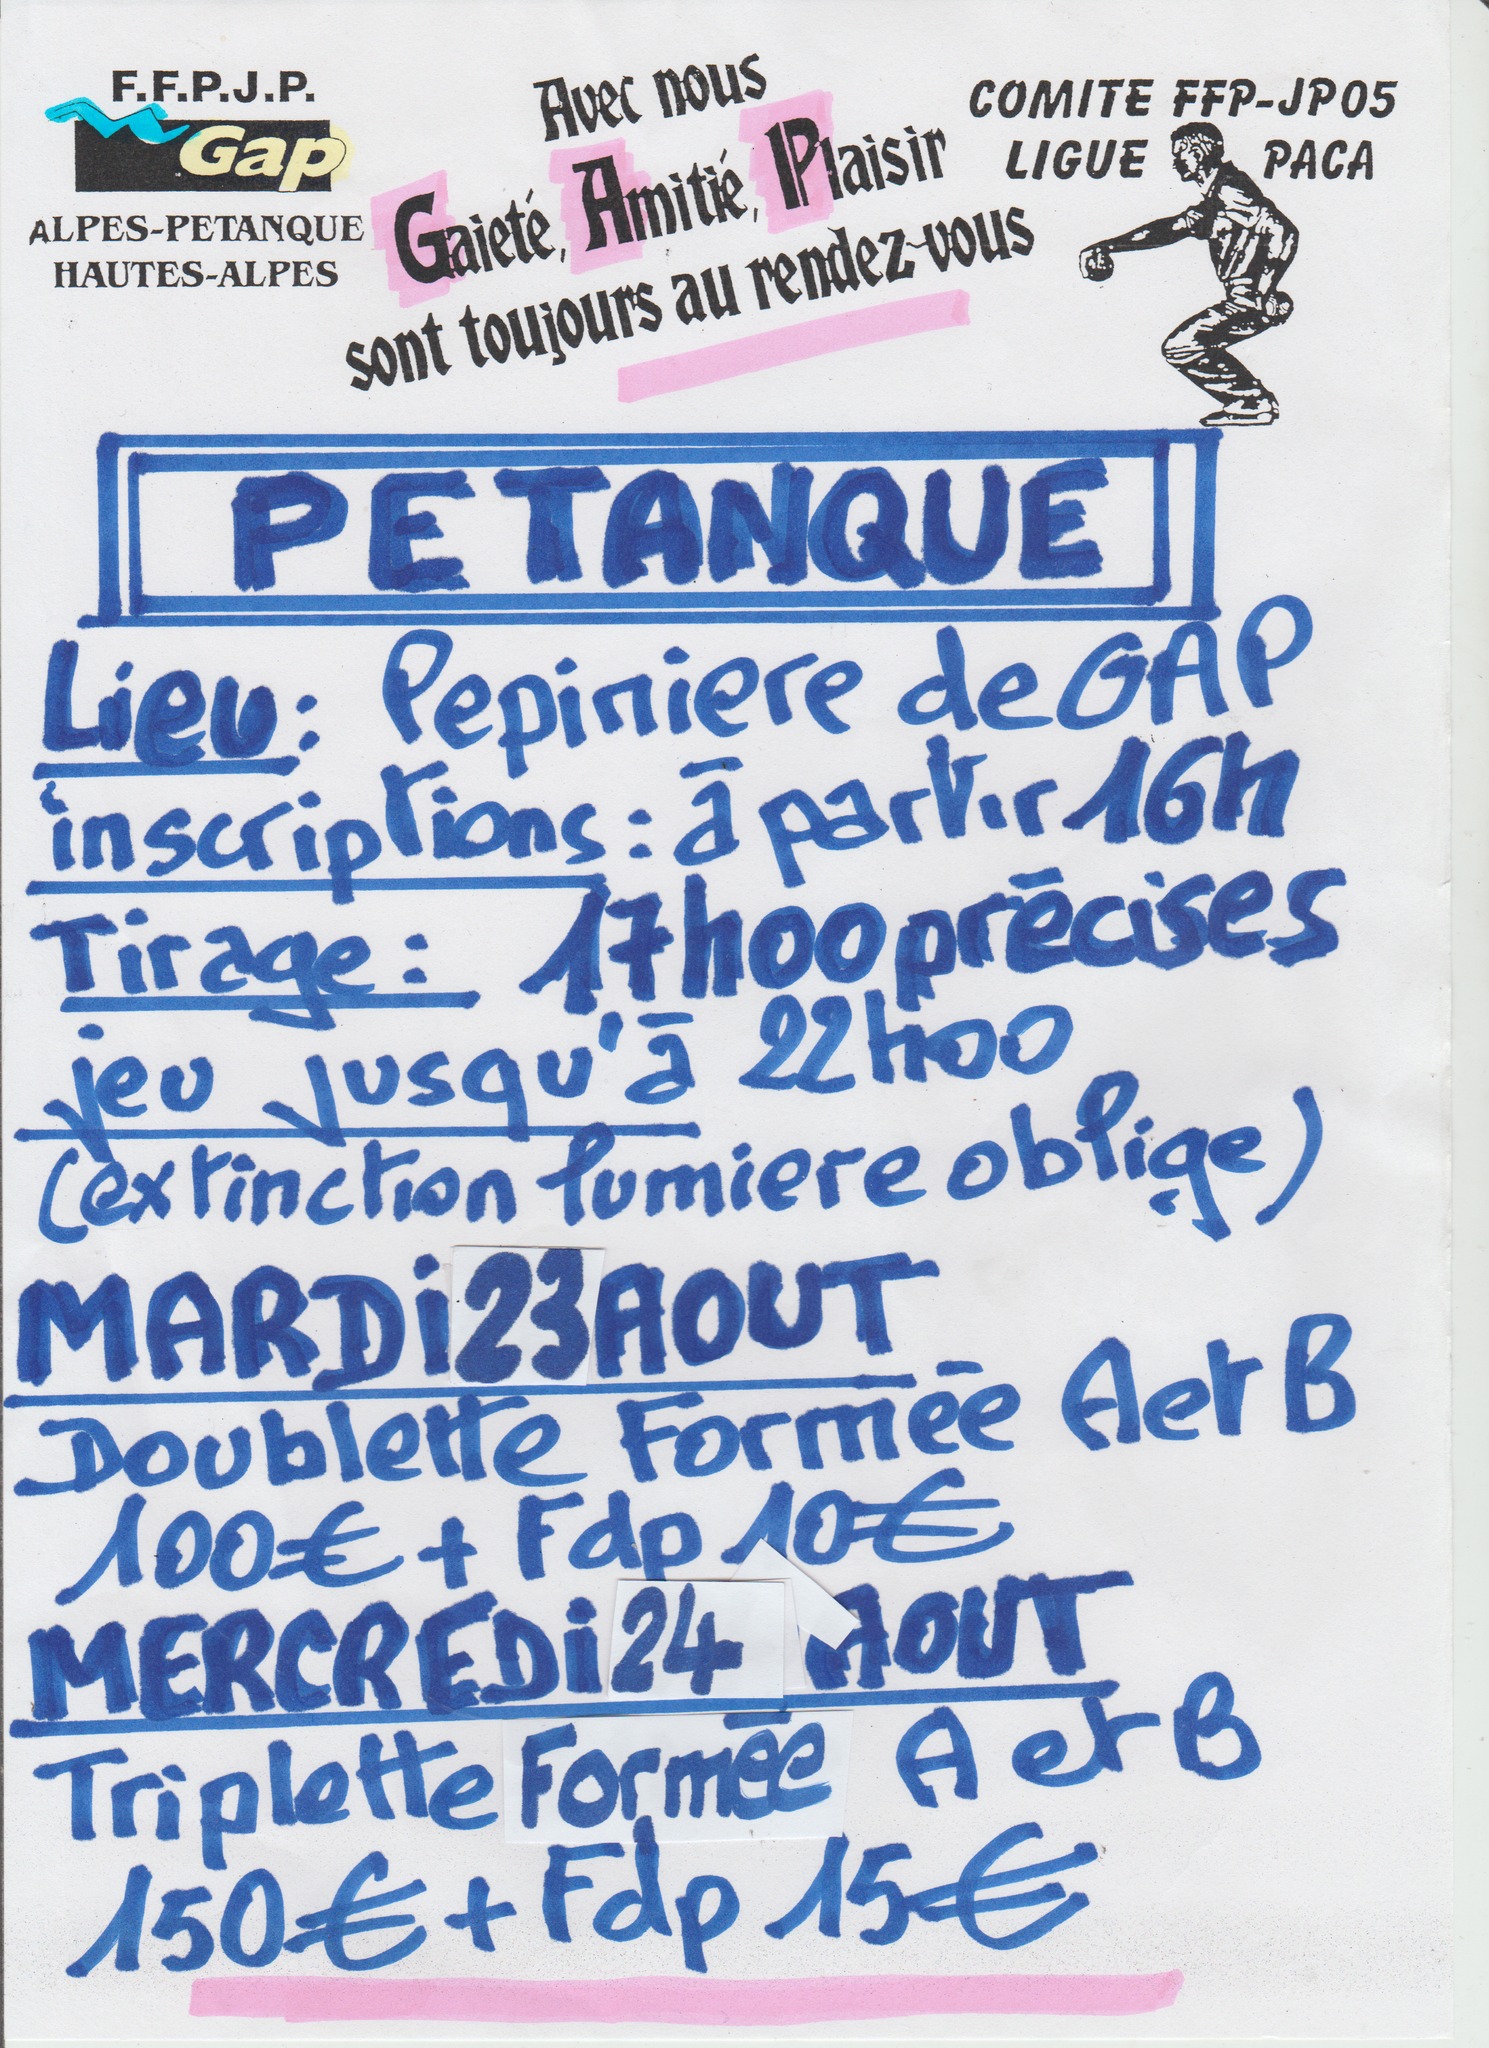 F.F.P.J.P.
Gap
ALPES-PETANQUE
HAUTES-ALPES
Avec nous
Gaieté, Amitié, Plaisir
sont toujours au rendez-vous
COMITE FFP-JP05
LIGUE PACA
PETANQUE
Lieu: Pepiniere de GAP
inscriptions: à partir 16h
Tirage: 17h00 précises
jeu jusqu'à 22h00
(extinction lumiere oblige)
MARDi 23 AOUT
Doublette Formée A et B
100€ + Fdp 10€
MERCREDi 24 AOUT
Triplette Formée A et B
150€ + Fdp 15€